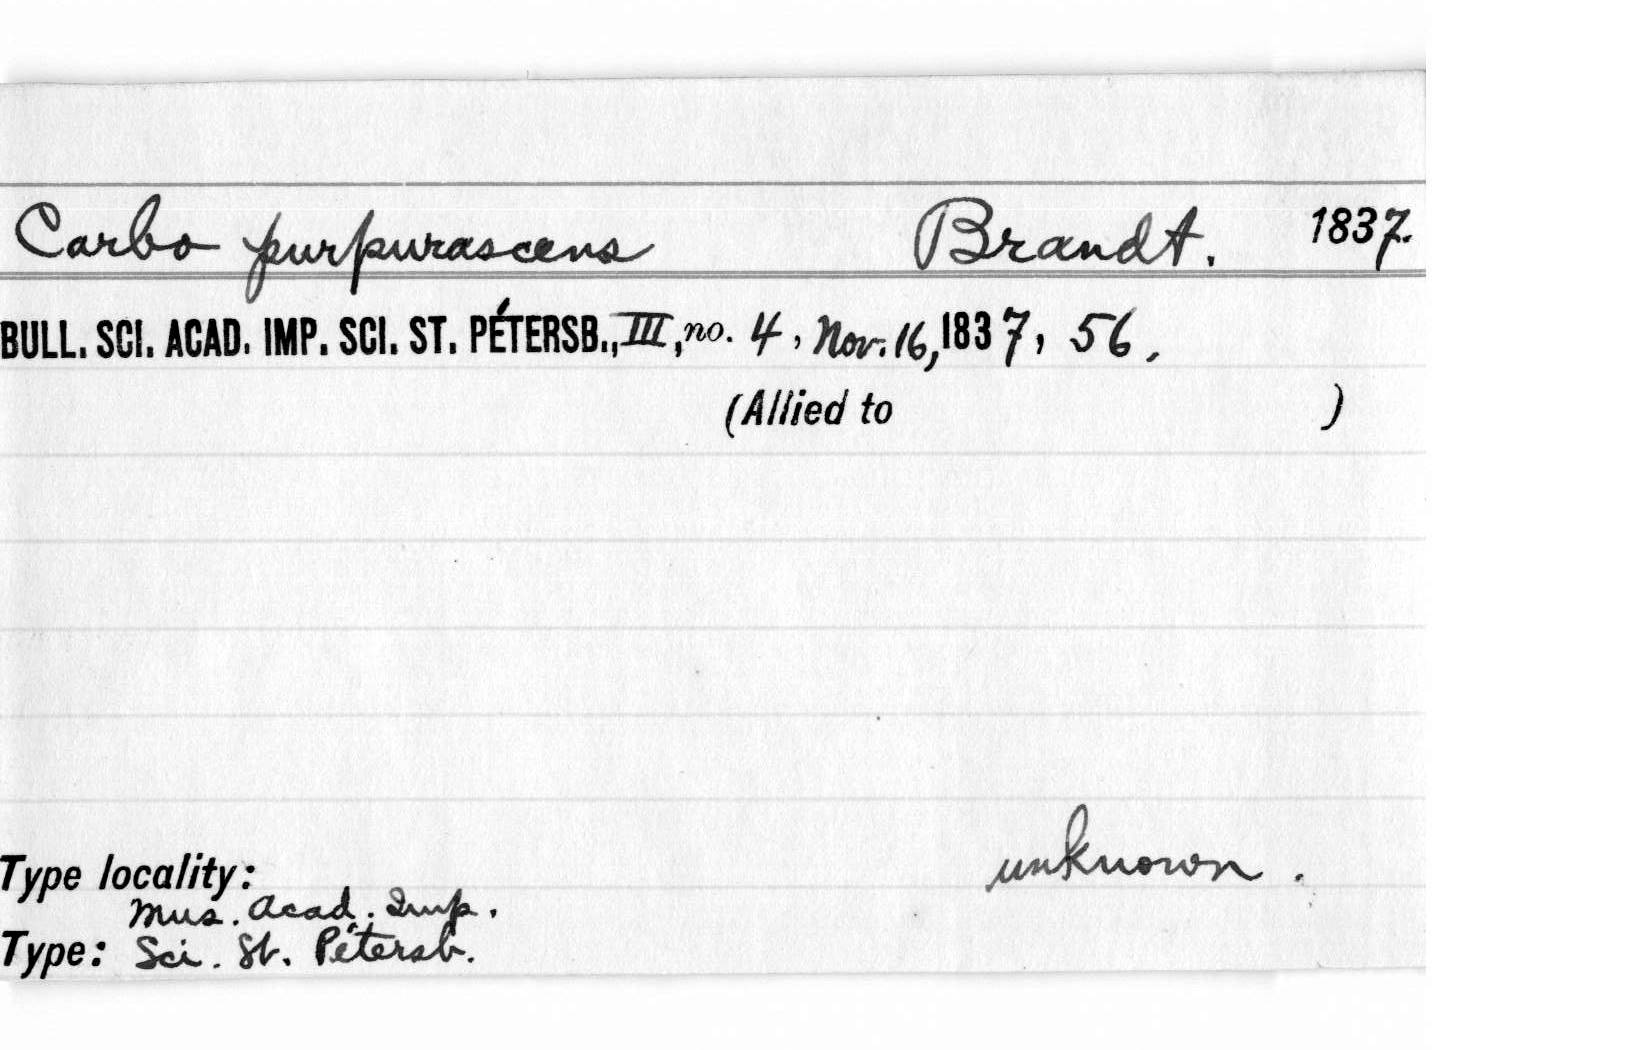 Carbo purpurascens Brandt. 1837.
BULL. SCI. ACAD. IMP. SCI. ST. PÉTERSB., III, no. 4, Nov. 16, 1837, 56.
(Allied to )
unknown.
Type locality:
Mus. Acad. Imp.
Type: Sci. St. Pétersb.